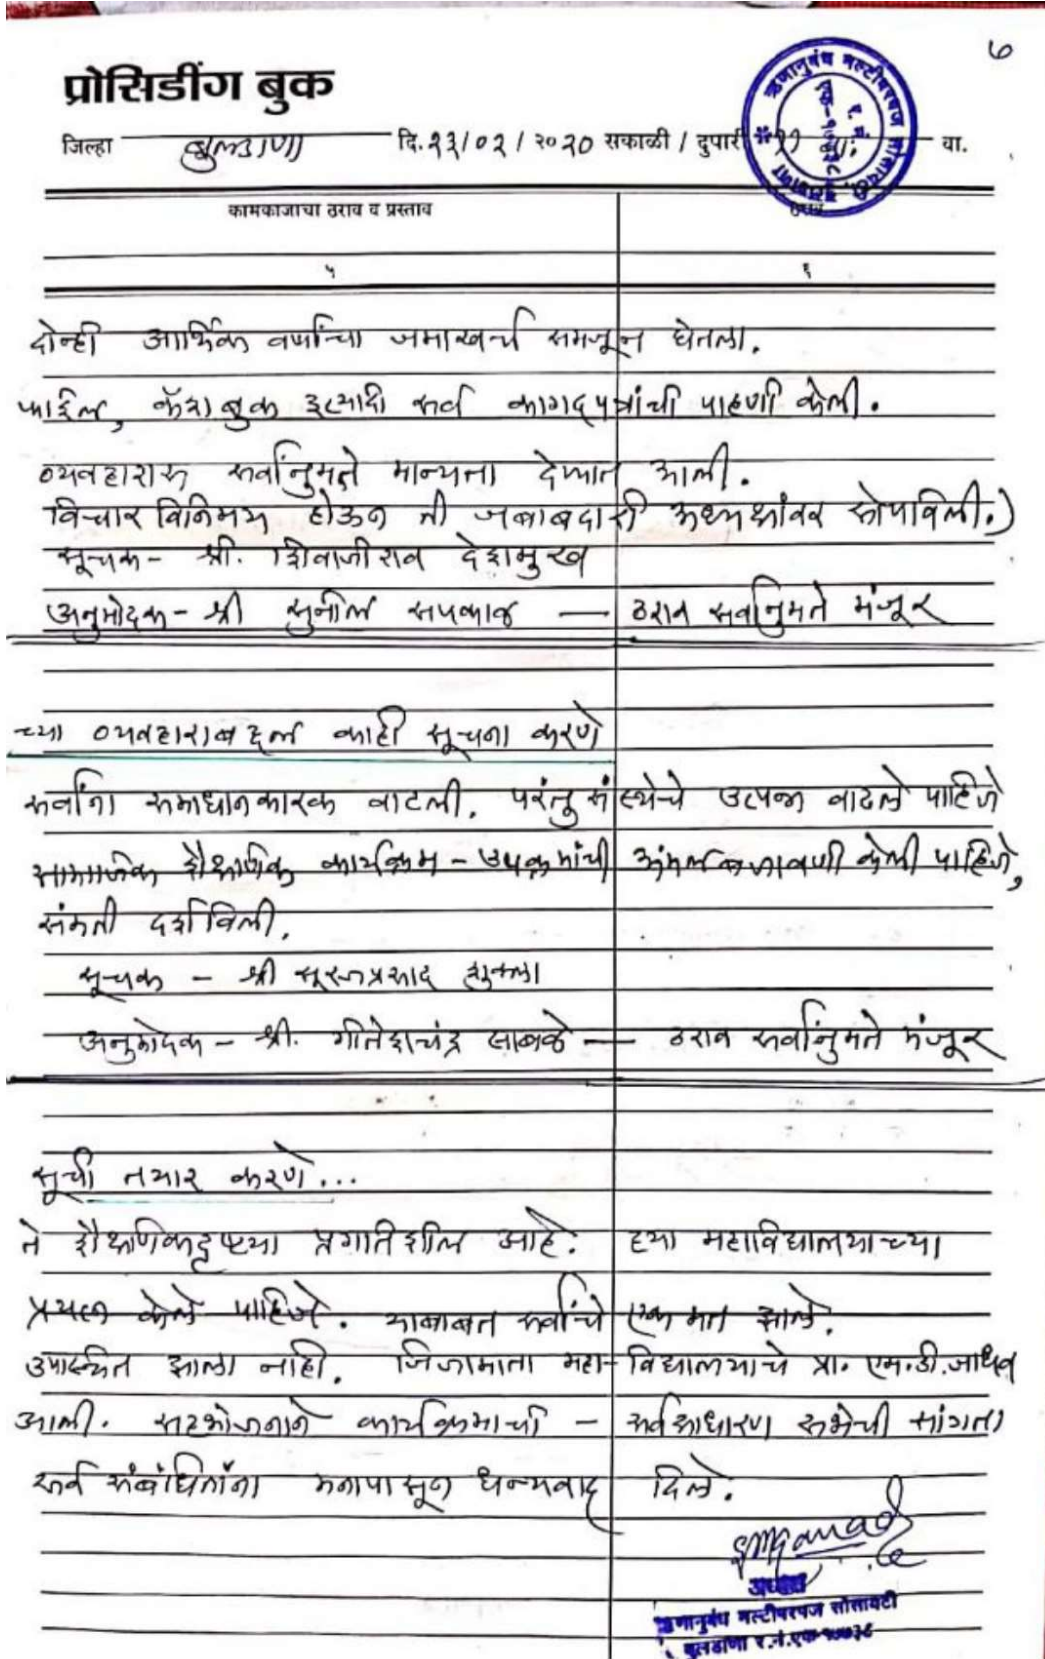 ७
प्रोसिडींग बुक
जिल्हा बुलडाणा दि. २३/०२/२०२० सकाळी / दुपारी ११ वा.
ऋणानुबंध मल्टीपरपज सोसायटी
कामकाजाचा ठराव व प्रस्ताव
५ ६
दोन्ही आर्थिक वर्षांचा जमाखर्च समजून घेतला.
फाईल, कॅशबुक इत्यादी सर्व कागदपत्रांची पाहणी केली.
व्यवहारास सर्वानुमते मान्यता देण्यात आली.
विचार विनिमय होऊन ती जबाबदारी अध्यक्षांवर सोपविली.)
सूचक - श्री. शिवाजीराव देशमुख
अनुमोदक - श्री सुनील सपकाळ — ठराव सर्वानुमते मंजूर
च्या व्यवहाराबद्दल काही सूचना करणे
सर्वांना समाधानकारक वाटली. परंतु संस्थेचे उत्पन्न वाढले पाहिजे
सामाजिक शैक्षणिक कार्यक्रम - उपक्रमांची अंमलबजावणी केली पाहिजे,
संमती दर्शविली.
सूचक - श्री सूरजप्रसाद शुक्ला
अनुमोदक - श्री. गीतेशचंद्र साबळे — ठराव सर्वांनुमते मंजूर
सूची तयार करणे...
ते शैक्षणिकदृष्ट्या प्रगतिशील आहे. ह्या महाविद्यालयाच्या
प्रयत्न केले पाहिजे. याबाबत सर्वांचे एकमत झाले.
उपस्थित झाला नाही. जिजामाता महा-विद्यालयाचे प्रा. एम.डी.जाधव
आली. सहभोजनाने कार्यक्रमाची - सर्वसाधारण सभेची सांगता
सर्व संबंधितांना मनापासून धन्यवाद दिले.
अध्यक्ष
ऋणानुबंध मल्टीपरपज सोसायटी
बुलडाणा र.नं.एफ-१७७३८